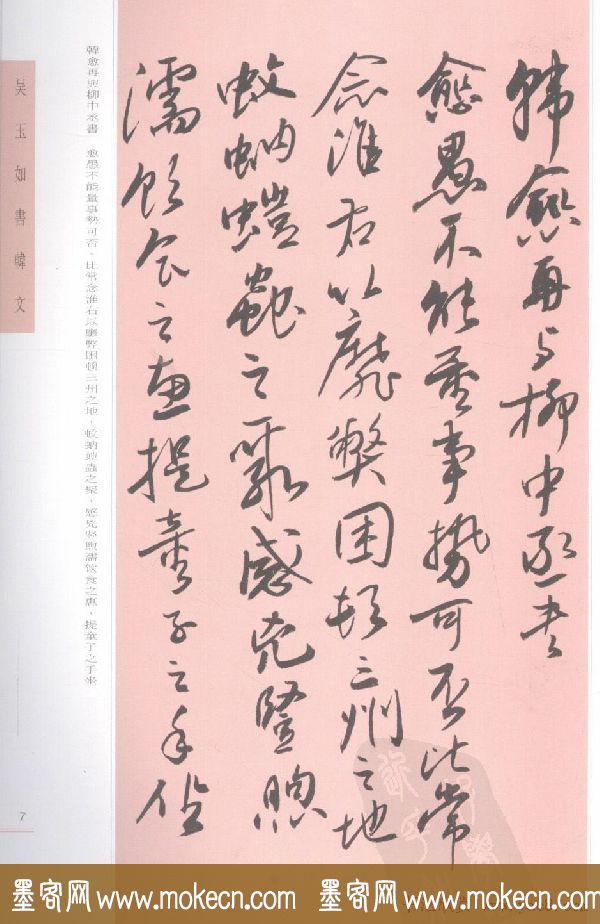 韓愈再与柳中丞书
愈愚不能量事勢可否比常
念淮右以靡弊困頓三州之地
蚊蚋螘蟲之聚感兇豎煦
濡飲食之惠提童子之手坐
韓愈再與柳中丞書 愈愚不能量事勢可否,比常念淮右以靡弊困頓三州之地,蚊蚋螘蟲之聚,感兇豎煦濡飲食之惠,提童子之手坐
吴玉如書韓文
7
墨客网 www.mokecn.com 墨客网 www.mokecn.com